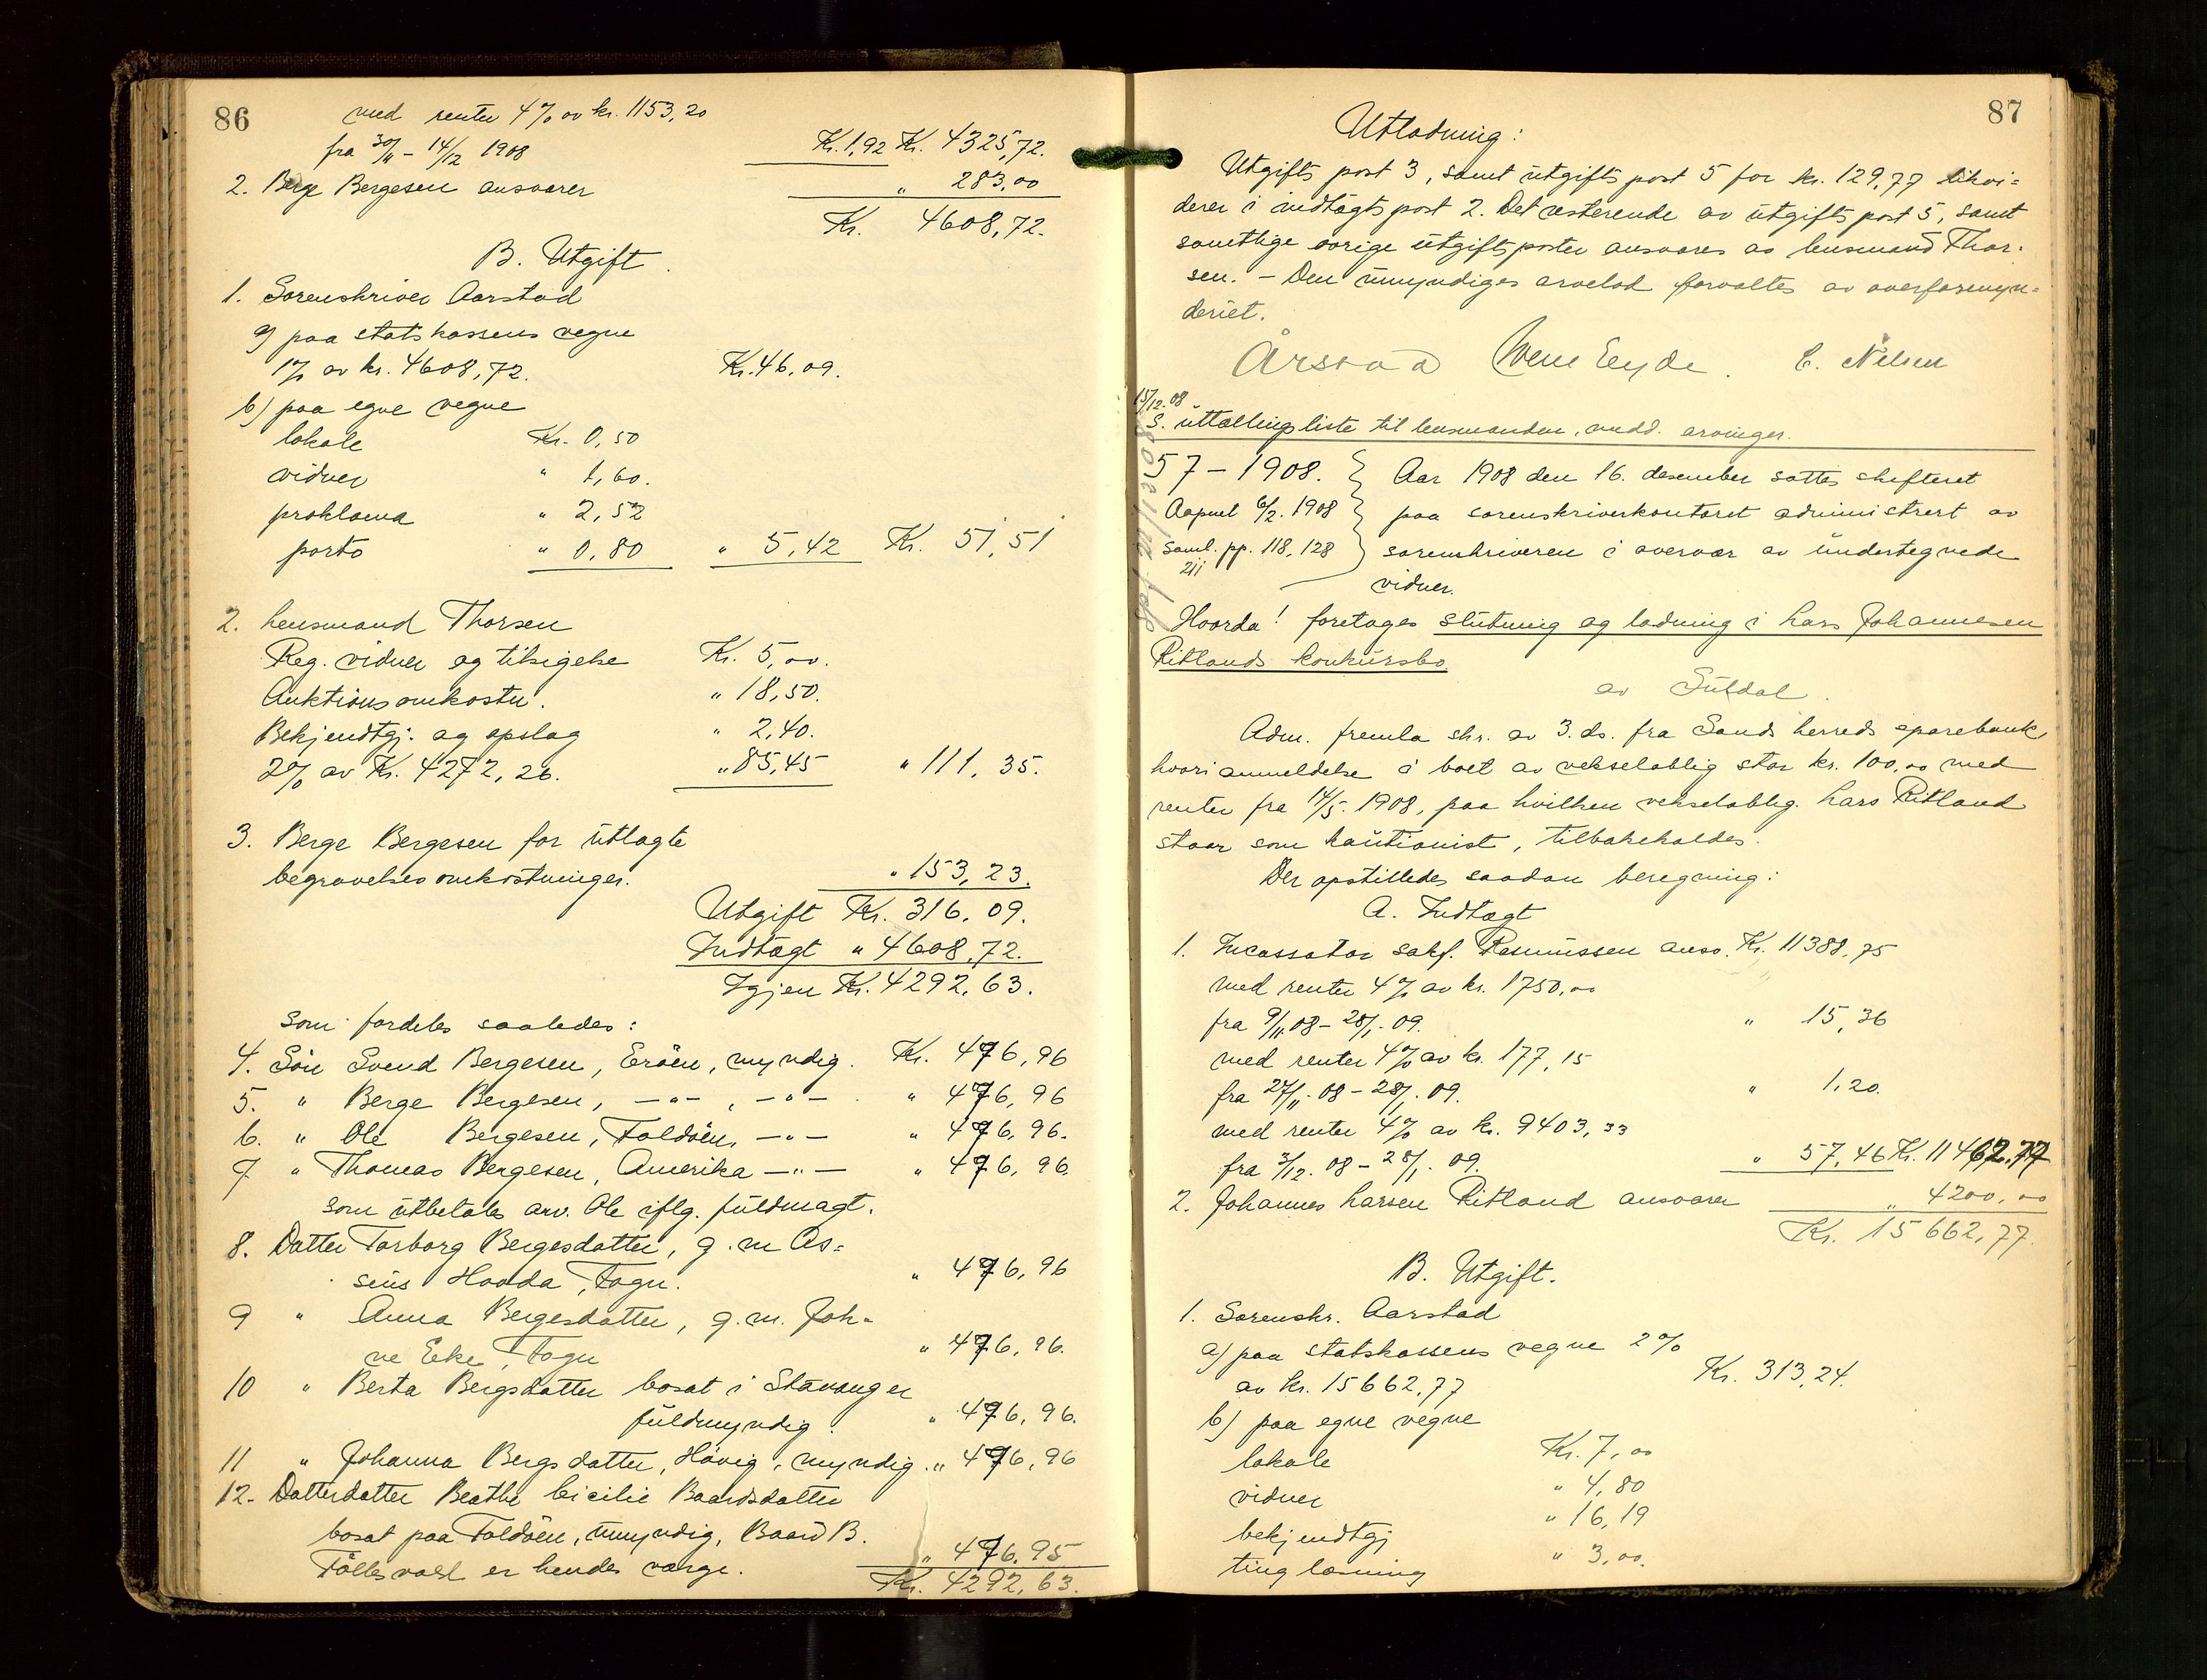 86
med renter 4% av kr. 1153,20
fra 30/11 - 14/12 1908 Kr. 1,92 Kr. 4325,72.
2. Berge Bergesen ansvarer " 283,00
Kr. 4608,72.
B. Utgift.
1. Sorenskriver Aarstad
a) paa statskassens vegne
1% av kr. 4608,72. Kr. 46,09.
b) paa egne vegne
lokale Kr. 0,50
vidner " 1,60.
proklama " 2,52
porto " 0,80 " 5,42 Kr. 51,51
2. Lensmand Thorsen
Reg. vidner og tilsigelse Kr. 5,00.
Auktionsomkostn. " 18,50.
Bekjendtgj. og opslag " 2,40.
2% av Kr. 4272,26. " 85,45 " 111,35.
3. Berge Bergesen for utlagte
begravelsesomkostninger. " 153,23.
Utgift Kr. 316,09.
Indtægt " 4608,72.
Igjen Kr. 4292,63.
som fordeles saaledes:
4. Søn Svend Bergesen, Eröen, myndig. Kr. 476,96
5. " Berge Bergesen, —"— , —"— . " 476,96
6. " Ole Bergesen, Foldöen, —"— " 476,96.
7 " Thomas Bergesen, Amerika —"— " 476,96.
som utbetales arv. Ole iflg. fuldmagt.
8. Datter Torborg Bergesdatter, g. m As-
seus Haada, Fogn. " 476,96
9 " Anna Bergesdatter, g. m. Joh-
ne Eike, Fogn " 476,96.
10 " Berta Bergsdatter bosat i Stavanger
fuldmyndig. " 476,96.
11 " Johanna Bergsdatter, Hövig, myndig. " 476,96
12. Datterdatter Beathe Cicilie Baardsdatter
bosat paa Foldöen, umyndig, Baard B.
Fölles vold er hendes værge. " 476,95
Kr. 4292,63.
87
Utlodning:
Utgifts post 3, samt utgifts post 5 for kr. 129,77 likvi=
derer i indtægts post 2. Det resterende av utgifts post 5, samt
samtlige övrige utgiftsposter ansvares av lensmand Thor-
sen. - Den umyndiges arvelod forvaltes av overformyn-
deriet.
Årstad Sven Eeyde. C. Nelsen
15/12.08
S. uttællingsliste til lensmanden, medd. arvinger.
57 - 1908. Aar 1908 den 16. desember sattes skifteret
Aapnet 6/2. 1908 paa sorenskriverkontoret administrert av
saml. pp. 118, 128 sorenskriveren i overvær av undertegnede
211
vidner.
Hvorda! foretages slutning og lodning i Lars Johannesen
Ritlands konkursbo
av Suldal.
Adm. fremla skr. av 3. ds. fra Sands herreds sparebank,
hvori anmeldelse i boet av vekseloblig stor kr. 100,00 med
renter fra 14/5. 1908, paa hvilken vekseloblig. Lars Ritland
staar som kautionist, tilbakeholdes.
Der opstilledes saadan beregning:
A. Indtægt
1. Incassator sakf. Rasmussen ansv. Kr. 11388,75
med renter 4% av kr. 1750,00
fra 9/11 08 - 28/1. 09. " 15,36
med renter 4% av kr. 177,15
fra 27/11. 08 - 28/1. 09. " 1,20.
med renter 4% av kr. 9403,33
fra 3/12. 08 - 28/1. 09. " 57,46 Kr. 11462,77
2. Johannes Larsen Ritland ansvarer " 4200,00
Kr. 15662,77.
B. Utgift.
1. Sorenskr. Aarstad
a) paa statskassens vegne 2%
av kr. 15662,77 Kr. 313,24.
b) paa egne vegne
lokale Kr. 7,00
vidner " 4,80
bekjendtgj " 16,19
ting læsning " 3,00.